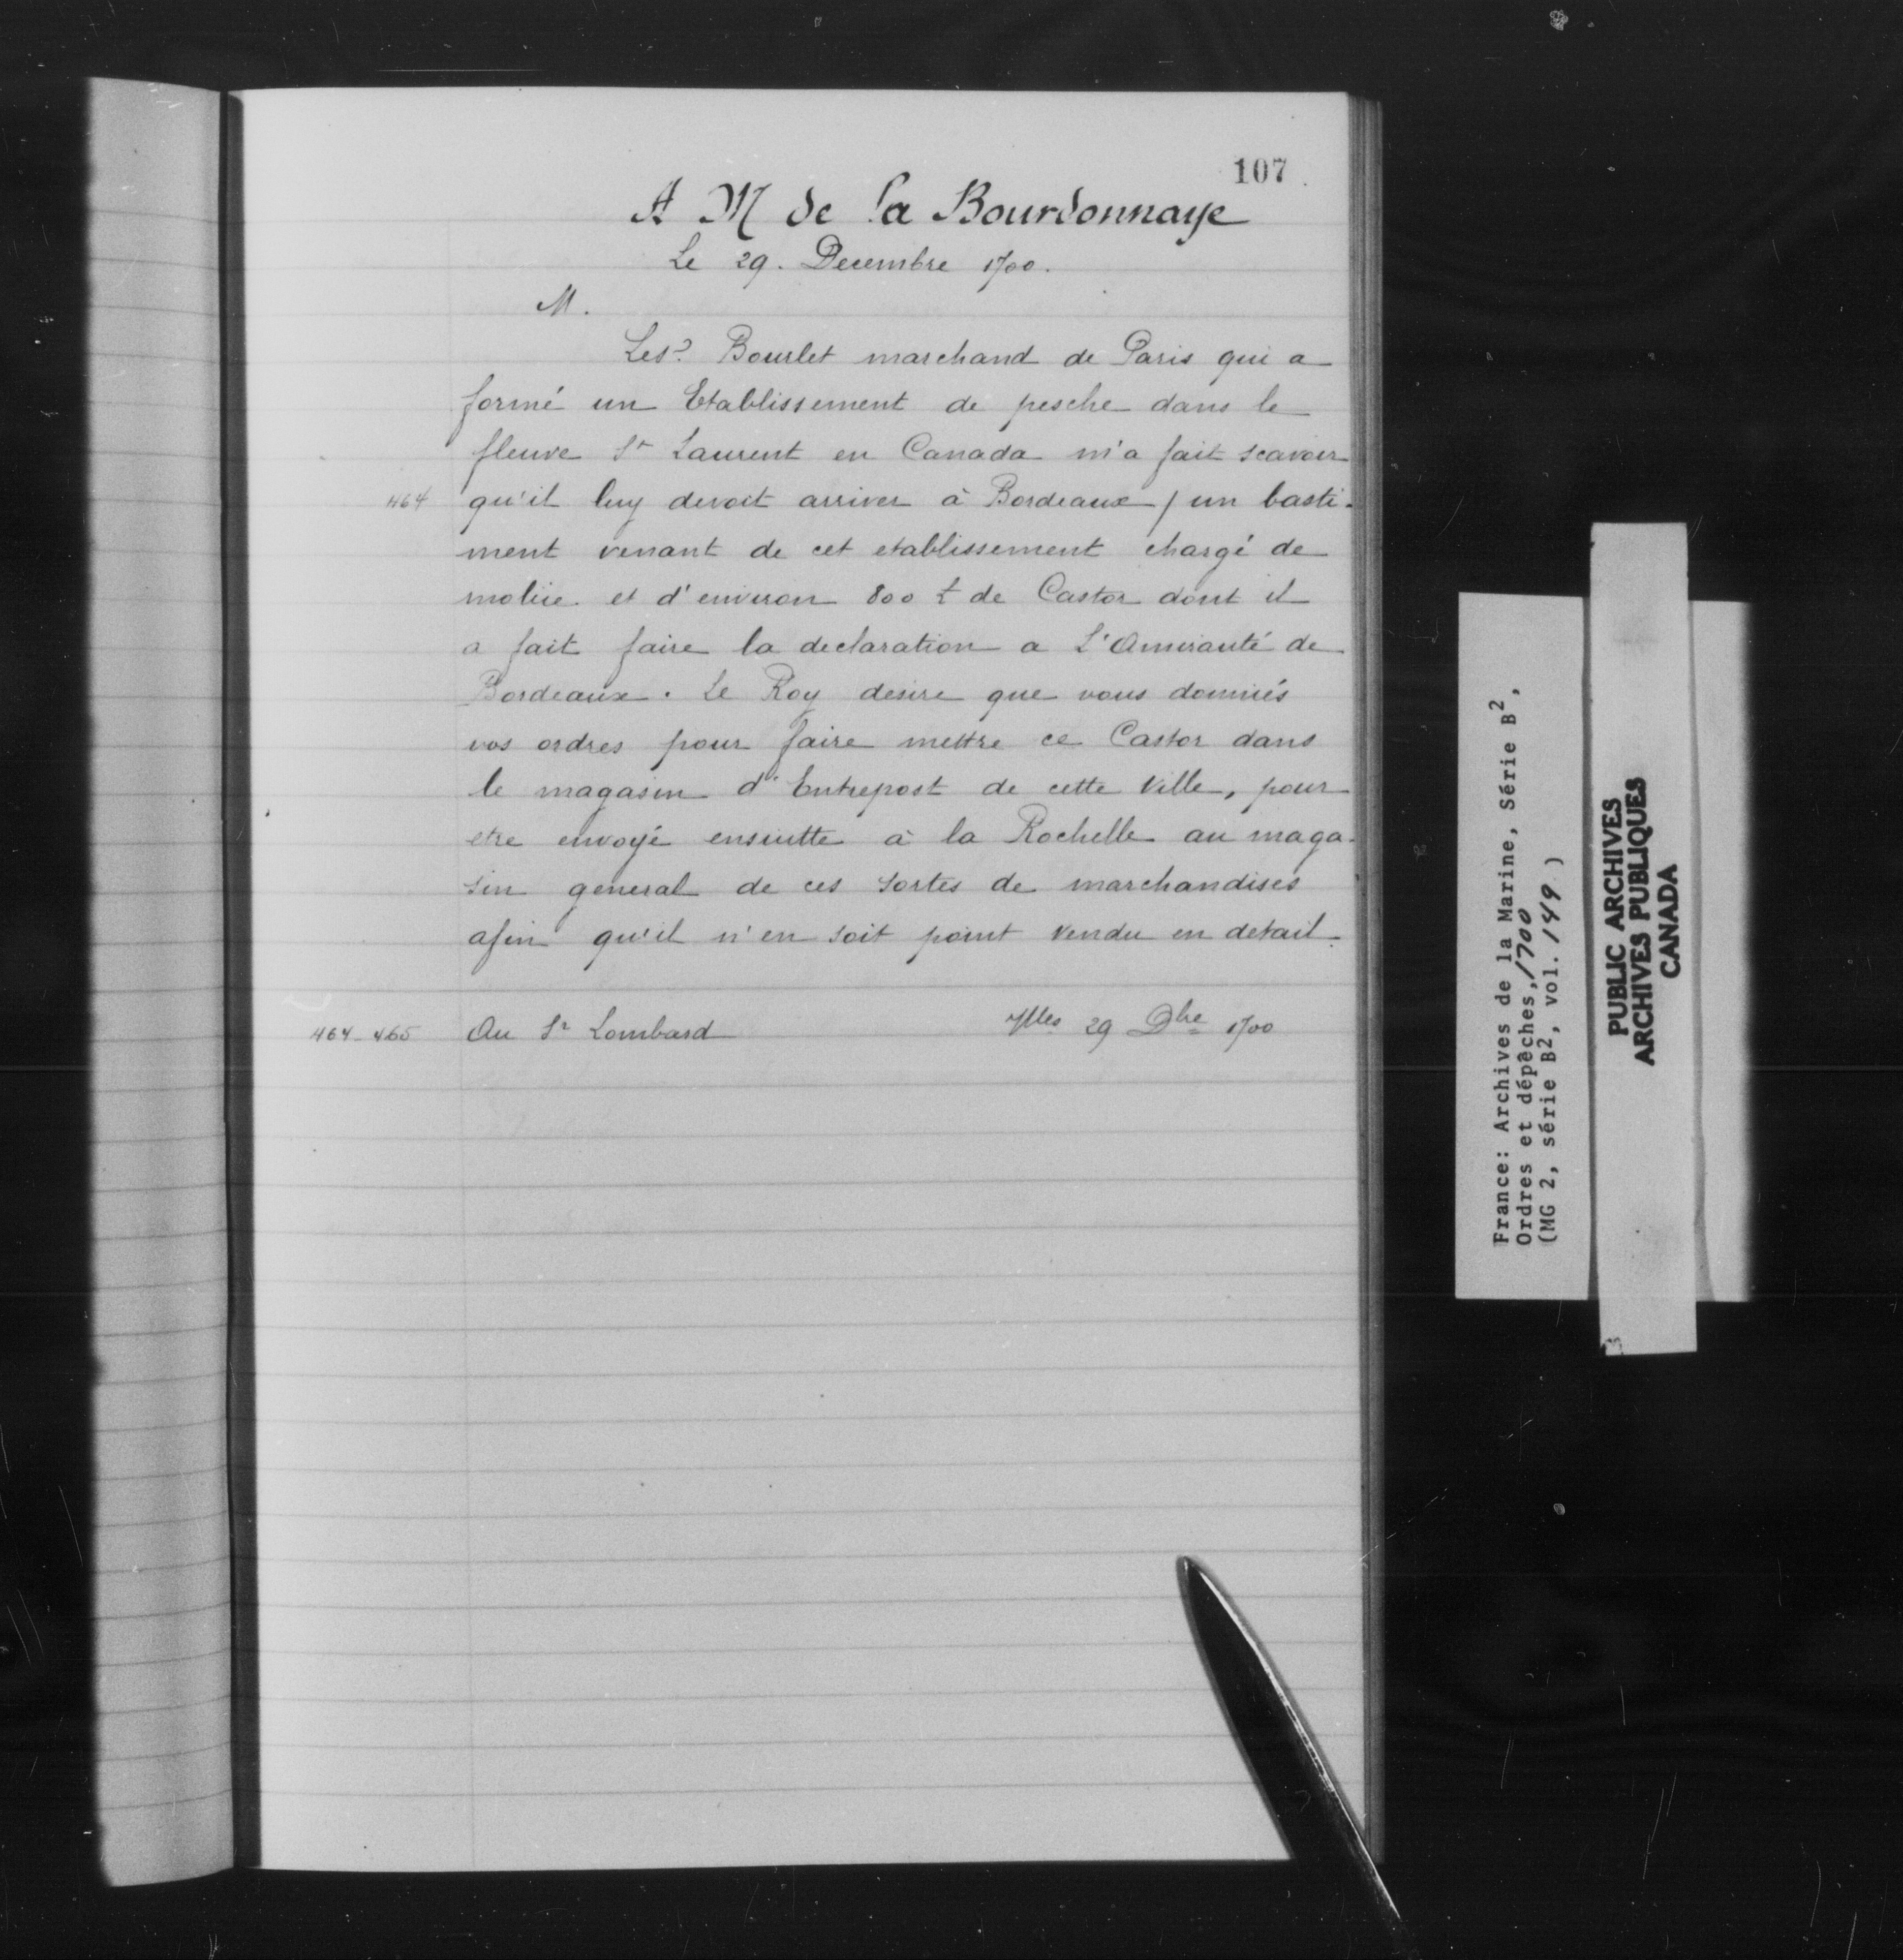 107
A M de la Bourdonnaye
Le 29. Decembre 1700.
M.
Le Sr Bourlet marchand de Paris qui a
formé un Etablissement de pesche dans le
fleuve St Laurent en Canada m'a fait scavoir
464 qu'il luy devoit arriver à Bordeaux / un basti-
ment venant de cet etablissement chargé de
molüe et d'environ 800 ₶ de Castor dont il
a fait faire la declaration a L'Amirauté de
Bordeaux. Le Roy desire que vous donniés
vos ordres pour faire mettre ce Castor dans
le magasin d'Entrepost de cette Ville, pour
etre envoyé ensuitte à la Rochelle au maga-
sin general de ces sortes de marchandises
afin qu'il n'en soit point vendu en detail.
464-465 Au Sr Lombard Vlles 29 Dbre 1700
France: Archives de la Marine, Série B2,
Ordres et dépêches, 1700
(MG 2, série B2, vol. 149)
PUBLIC ARCHIVES
ARCHIVES PUBLIQUES
CANADA